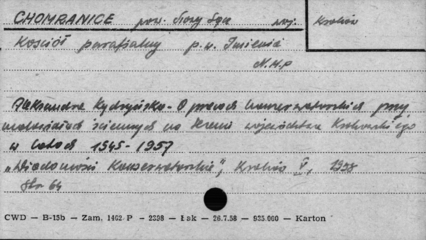 CHOMRANICE pow. Nowy Sącz woj. Kraków
Kościół parafialny p.w. Imienia
N.M.P
Aleksandra Kędzyńska - O pracach konserwatorskich przy
malowidłach ściennych na terenie województwa Krakowskiego
w latach 1945 - 1957
"Wiadomości Konserwatorskie", Kraków I, 1958
Str 64
CWD — B-15b — Zam. 1462-P — 2398 — Łak — 26.7.58 — 925.000 — Karton